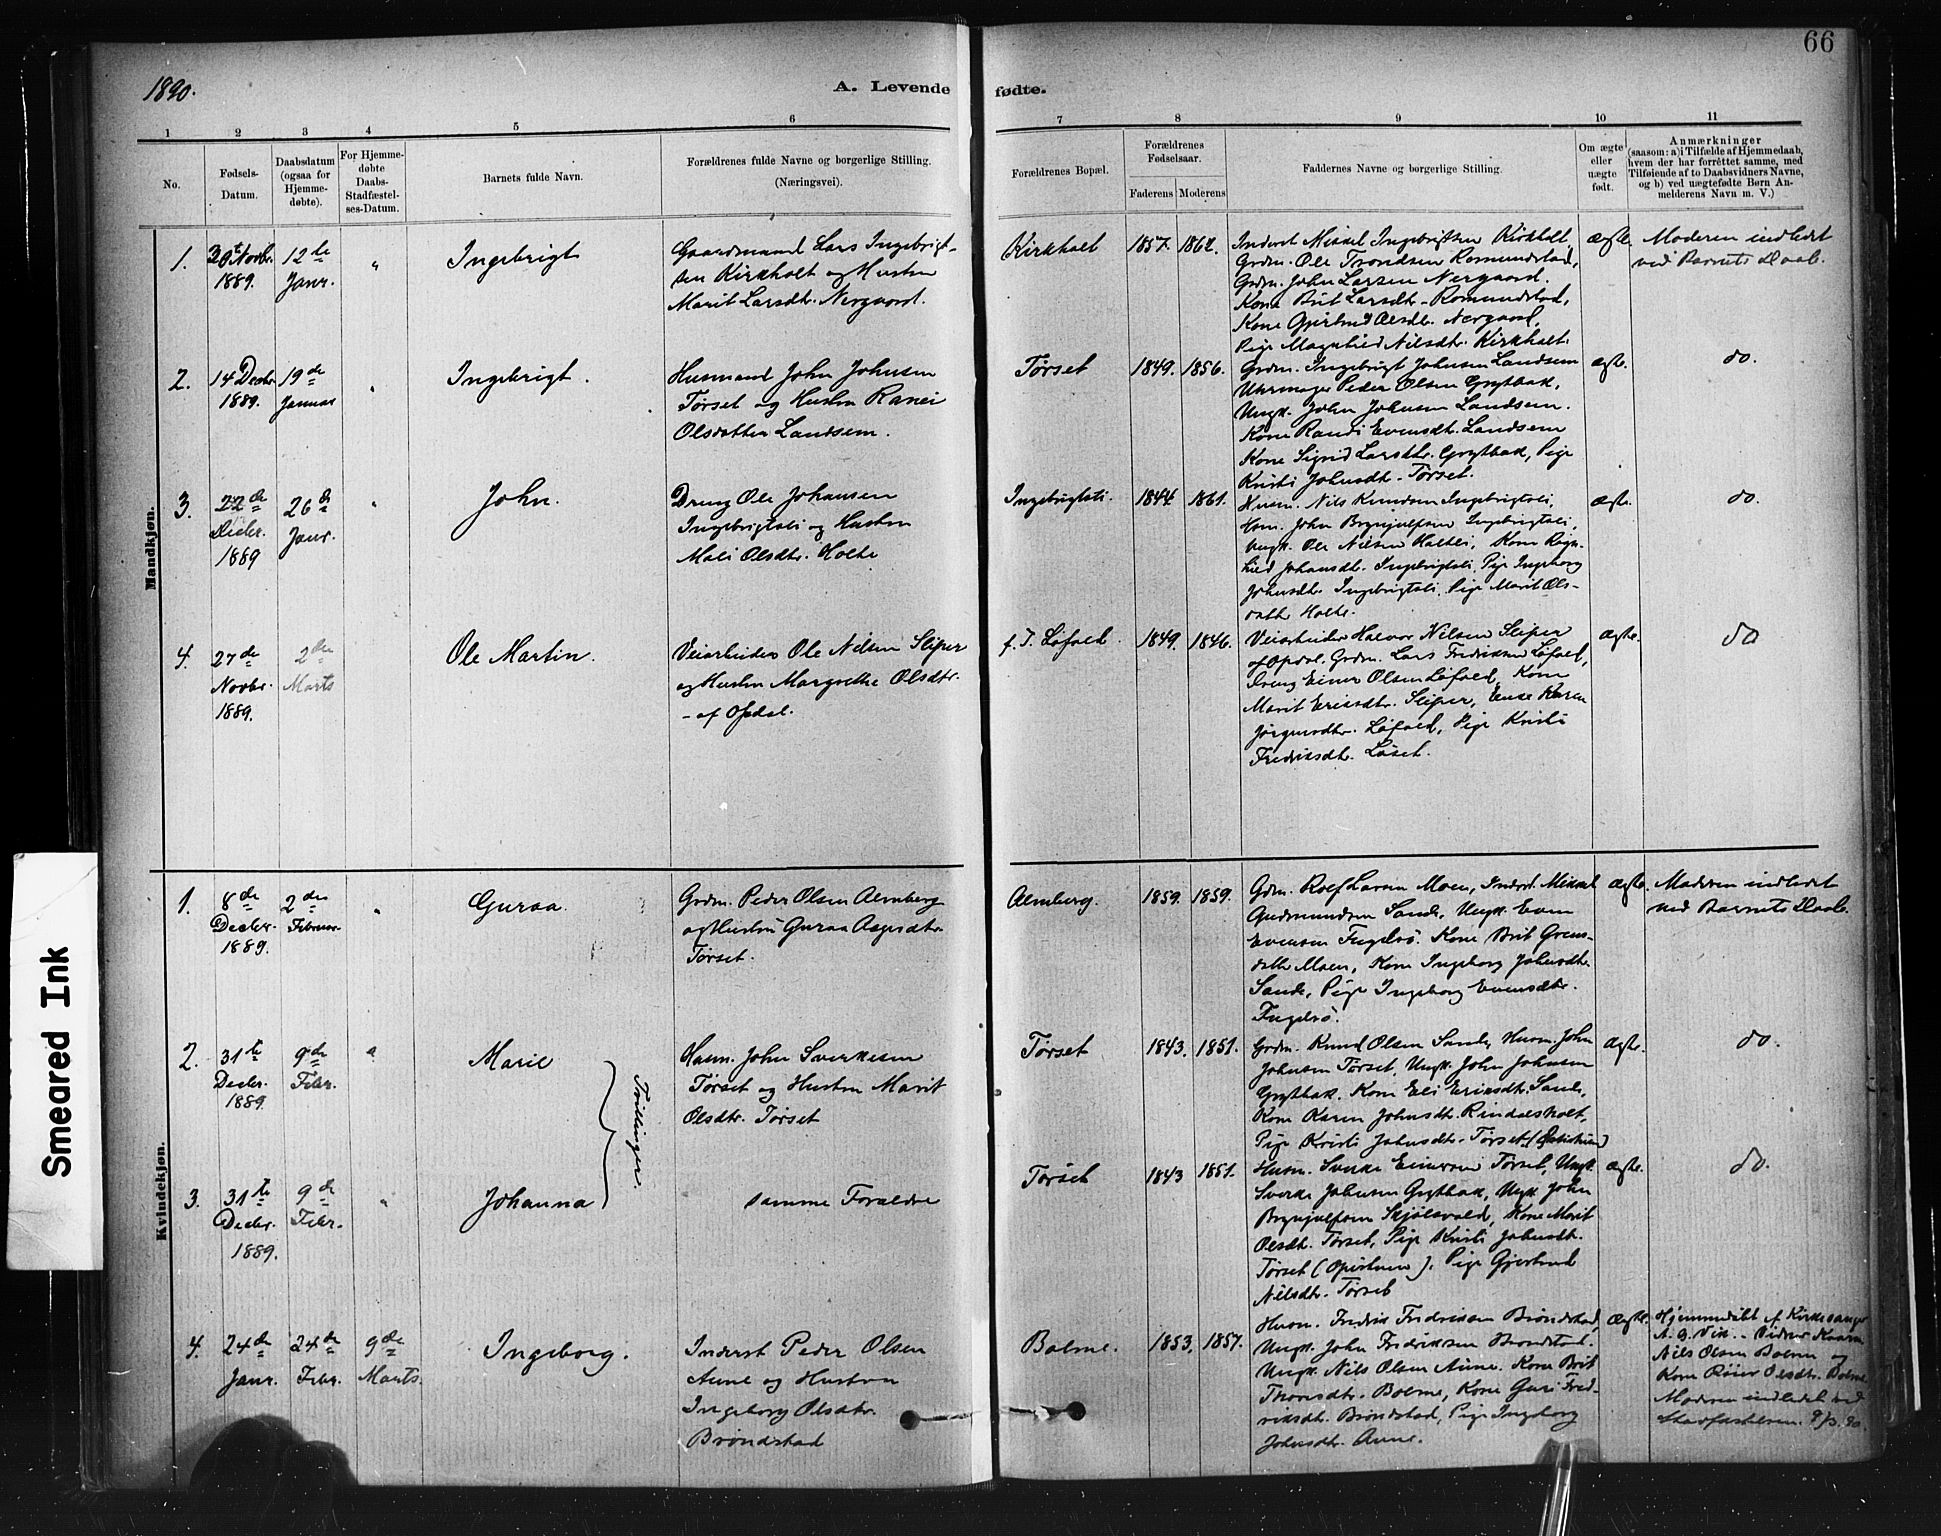 66
1890.
A. Levende fødte.
1 2 3 4 5 6 7 8 9 10 11
No.
Fødsels-
Datum.
Daabsdatum
(ogsaa for
Hjemme-
døbte).
For Hjemme-
døbte
Daabs-
Stadfæstel-
ses-Datum.
Barnets fulde Navn.
Forældrenes fulde Navne og borgerlige Stilling.
(Næringsvei).
Forældrenes Bopæl.
Forældrenes
Fødselsaar.
Faderens Moderens
Faddernes Navne og borgerlige Stilling.
Om ægte
eller
uægte
født.
Anmærkninger
(saasom: a) i Tilfælde af Hjemmedaab,
hvem der har forrettet samme, med
Tilføiende af to Daabsvidners Navne,
og b) ved uægtefødte Børn An-
melderens Navn m. V.)
Mandkjøn.
1.
Novbr.
1889.
12te
Janr.
"
Ingebrigt
Gaardmand Lars Ingebrigt-
sen Kirkholt og Hustru
Marit Larsdtr. Nergaard.
Kirkholt
1857. 1862.
Inderst Mikkel Ingebrigtsen Kirkholt,
Grdm. Ole Trondsen Romundstad,
Grdm. John Larsen Nergaard.
Kone Brit Larsdtr. Romundstad,
Kone Gjertrud Olsdtr. Nergaard,
Pige Magnhild Nilsdtr. Kirkholt.
Ægte.
Moderen indledet
ved Barnets Daab.
2.
14 Decbr.
1889.
19de
Januar
"
Ingebrigt.
Husmand John Johnsen
Tørset og Hustru Ranei
Olsdatter Landsem.
Tørset
1849. 1856.
Grdm. Ingebrigt Johnsen Landsem
Uhrmager Peder Olsen Grytbak,
Ungk. John Johnsen Landsem.
Kone Randi Evensdtr. Landsem
Kone Sigrid Larsdtr. Grytbak, Pige
Kristi Johnsdt. Tørset.
ægte.
do.
3.
22de
Decbr.
1889
26de
Janr.
"
John.
Dreng Ole Johansen
Ingebrigtsli og Hustru
Mali Olsdtr. Holte
Ingebrigtsli.
1844. 1861.
Husm. Nils Knudsen Ingebrigtsli,
Husm. John Brynjulfsen Ingebrigtsli,
Ungk. Ole Nilsen Holtli, Kone Ragn-
hild Johansdt. Ingebrigtsli, Pige Ingeborg
Johnsdtr. Ingebrigtsli, Pige Marit Ols-
datter Holte.
ægte.
do.
4.
27de
Novbr.
1889.
2den
Marts
Ole Martin.
Veiarbeider Ole Nilsen Sliper
og Hustru Margrethe Olsdtr.
- af Opdal.
f. T. Løfald.
1849. 1846.
Veiarbeider Halvor Nilsen Sliper
af Opdal. Grdm. Lars Fredriksen Løfald,
Dreng Einar Olsen Løfald, Kone
Marit Eriksdtr. Sliper, Enke Karen
Jørgensdtr. Løfald, Pige Kristi
Fredriksdtr. Løset.
Ægte.
do
Kvindekjøn.
1.
8de
Decbr.
1889.
2den
Februar.
"
Guraa
Grdm. Peder Olsen Almberg
og Hustru Guraa Aagesdtr.
Tørset.
Almberg.
1859. 1859.
Grdm. Rolf Larsen Moen, Inderst. Mikkel
Gudmundsen Sande, Ungk. Even
Evensen Fugelsö. Kone Brit
Moen, Kone Ingeborg Johnsdtr.
Sande, Pige Ingeborg Evensdtr.
Fugelsö.
Ægte.
Moderen indledet
ved Barnets Daab.
2.
31te
Decbr.
1889.
9de
Febr.
"
Marie
Husm. John Sverkesen
Tørset og Hustru Marit
Olsdtr. Tørset
Tvillinger.
Tørset
1843. 1851.
Grdm. Knud Olsen Sande, Husm. John
Johnsen Tørset, Ungk. John Johnsen
Grytbak. Kone Eli Eriksdtr. Sande,
Kone Karen Johnsdtr. Rindalsholt,
Pige Kristi Johnsdtr. Tørset
Ægte.
do.
3.
31te
Decbr.
1889.
9de
Febr.
"
Johanna
samme Forældre
Tørset
1843 1851.
Husm. Sverke Einersen Tørset, Ungk.
Sverke Johnsen Grytbak, Ungk. John
Brynjulfsen Skjølsvold, Kone Marit
Olsdt. Tørset, Pige Kristi Johnsdt.
Tørset. Pige Gjertrud
Nilsdtr. Tørset
Ægte.
do.
4.
24de
Janr.
24de
Febr.
9de
Marts.
Ingeborg.
Inderst Peder Olsen
Aune og Hustru
Ingeborg Olsdtr.
Brøndstad
Bolme.
1853. 1857.
Husm. Fredrik Fredriksen Brøndstad,
Ungk. John Fredriksen Brøndstad.
Ungk. Nils Olsen Aune. Kone Brit
Thomsdtr. Bolme, Kone Guri Fred-
riksdt. Brøndstad, Pige Ingeborg
Johnsdtr. Aune.
Ægte.
Hjemmedøbt af Kirkesanger
Nils Olsen Bolme og
Kone Olsdtr. Bolme
Moderen indledet ved
Stadfæstelsen. 9/3. 90.
Smeared Ink